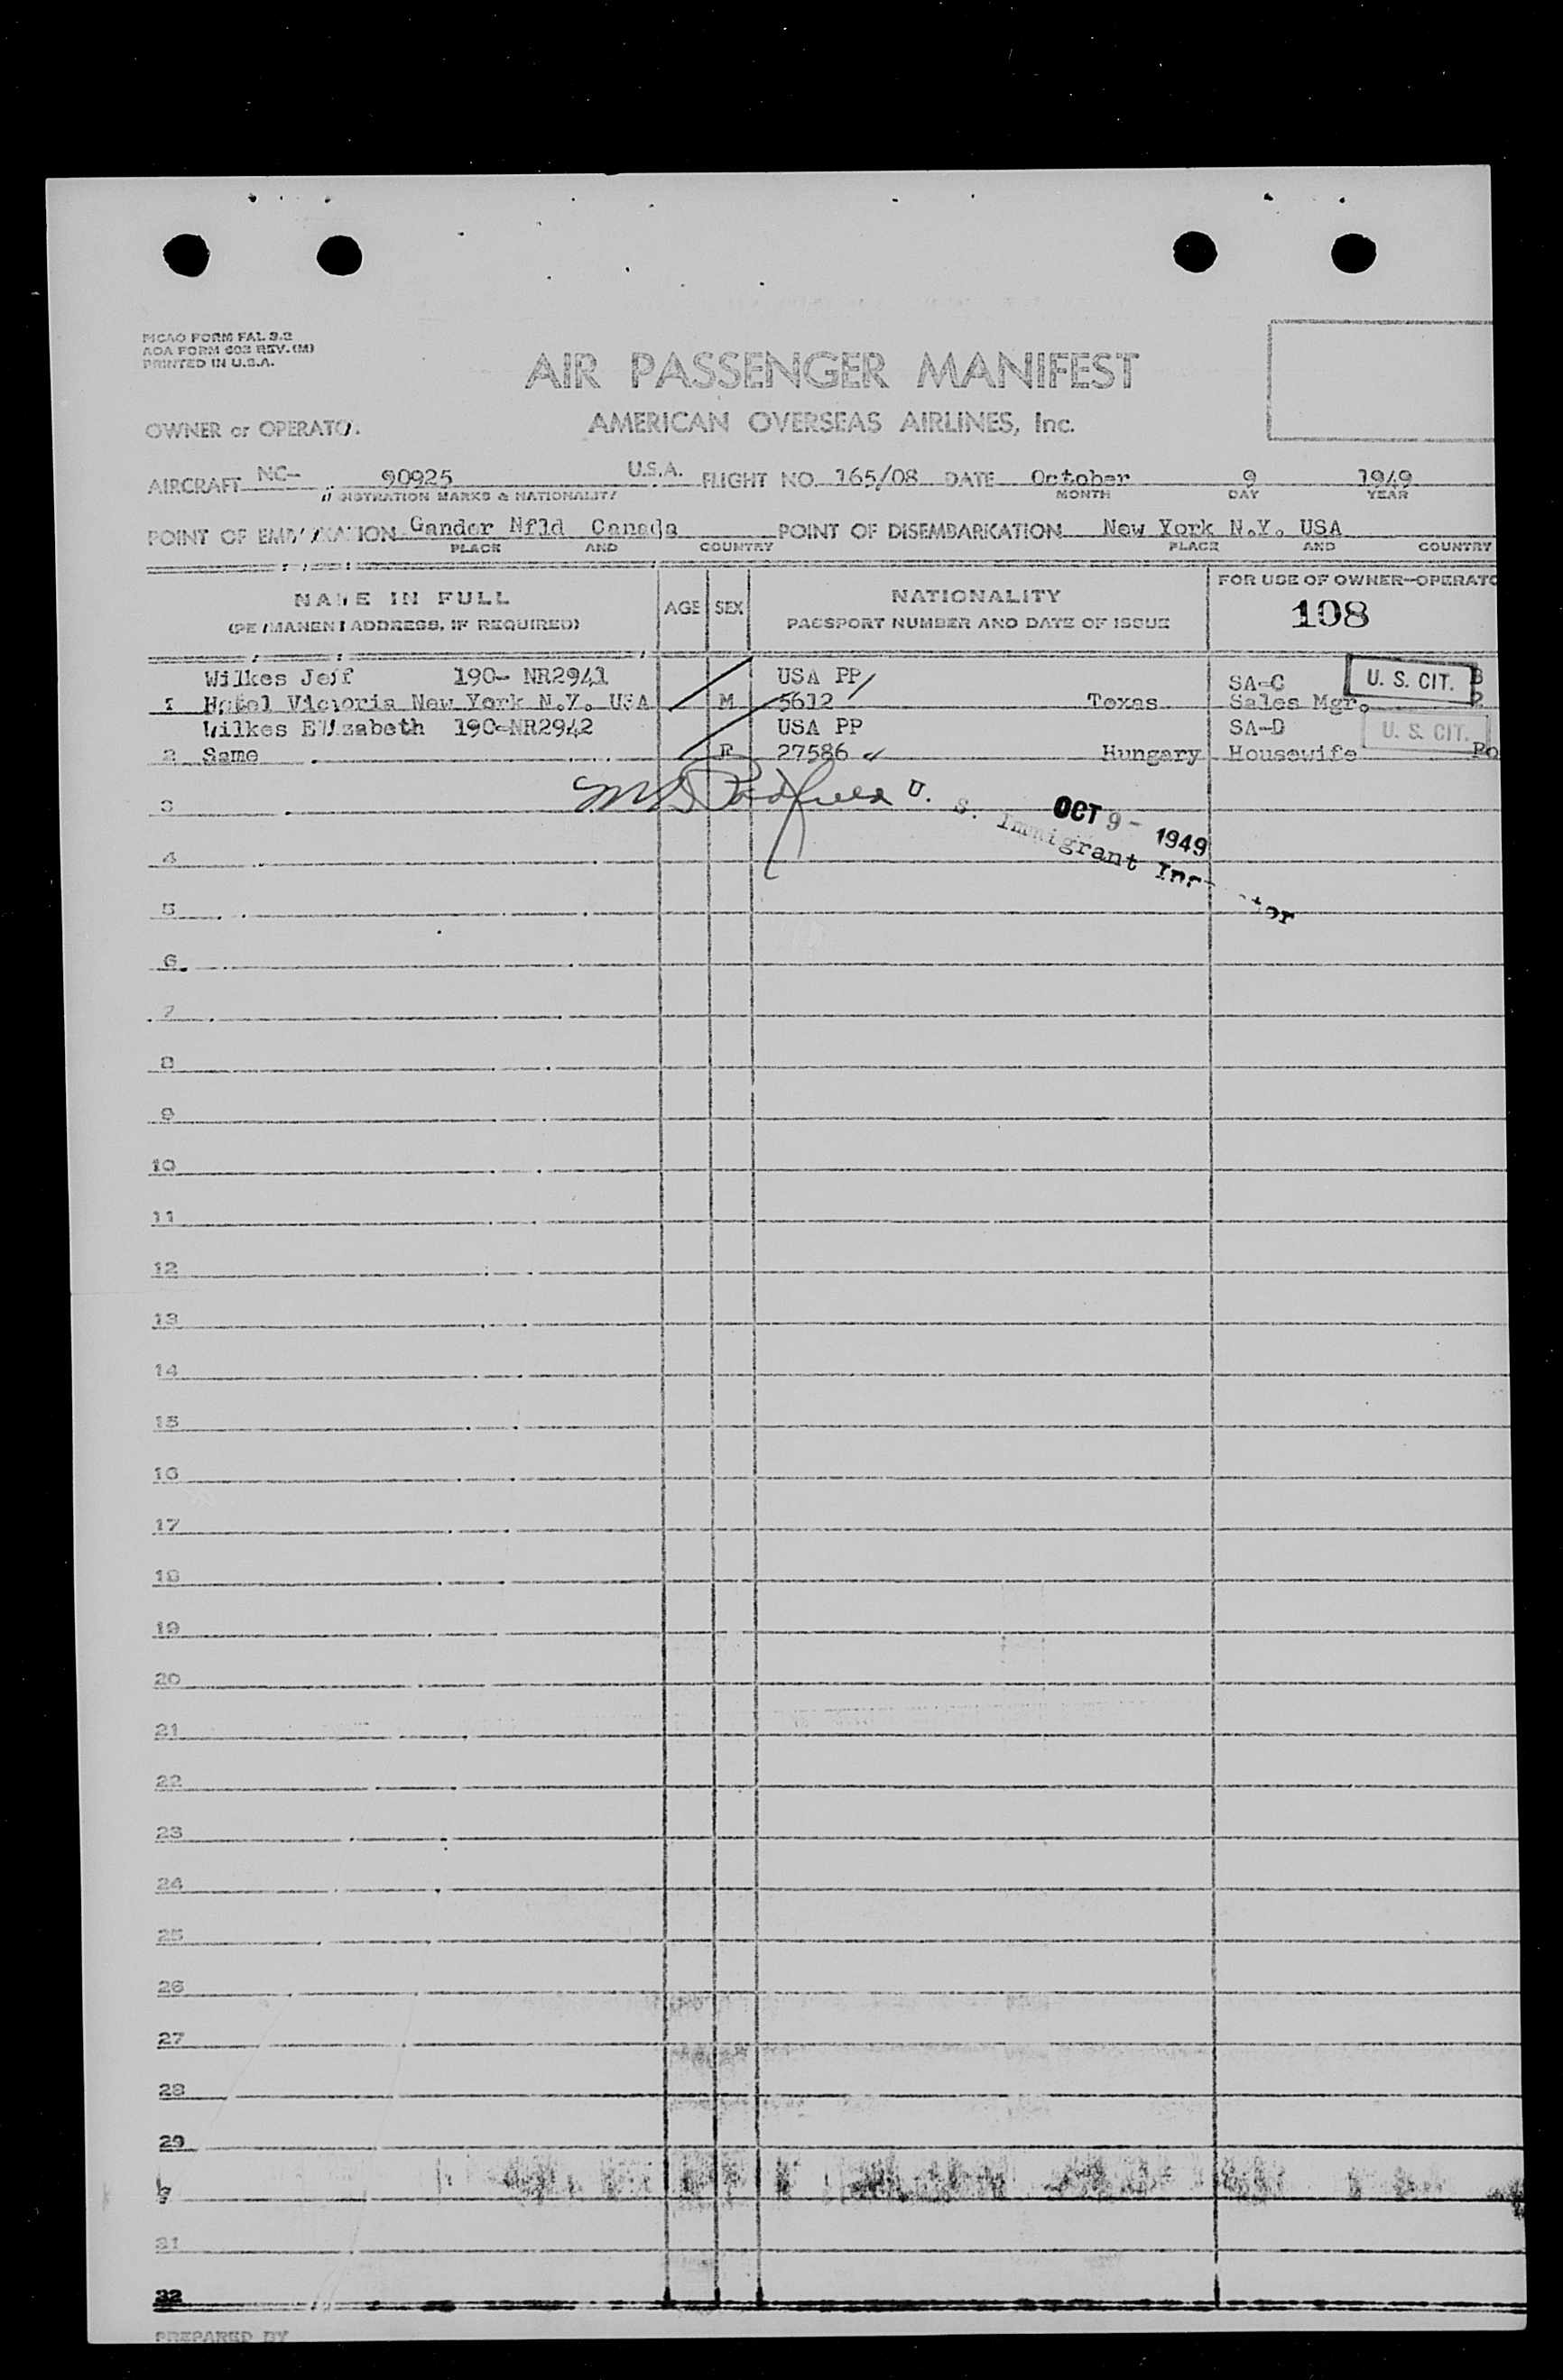 PICAO FORM FAL 3.2
AOA FORM 603 REV. (M)
PRINTED IN U.S.A.
AIR PASSENGER MANIFEST
OWNER or OPERATO
AMERICAN OVERSEAS AIRLINES, Inc.
AIRCRAFT NC- 90925 U.S.A. FLIGHT NO. 165/08 DATE October 9 1949
MARKS & NATIONALITY MONTH DAY YEAR
POINT OF Gander Nfld Canada POINT OF DISEMBARKATION New York N.Y. USA
PLACE AND COUNTRY PLACE AND COUNTRY
NAME IN FULL
(PERMANENT ADDRESS, IF REQUIRED)
AGE
SEX
NATIONALITY
PASSPORT NUMBER AND DATE OF ISSUE
FOR USE OF OWNER-OPERATO
108
Wilkes Jeff 190- NR2941 USA PP SA-C U. S. CIT. B
1 Hotel Victoria New York N.Y. USA M 5612 Texas Sales Mgr.
Wilkes Elizabeth 190-NR2942 USA PP SA-D U. S. CIT.
2 Same F 27586 Hungary Housewife Ho
3 U. S. Immigrant
OCT 9 - 1949
4
5
6
7
8
9
10
11
12
13
14
15
16
17
18
19
20
21
22
23
24
25
26
27
28
29
31
32
PREPARED BY